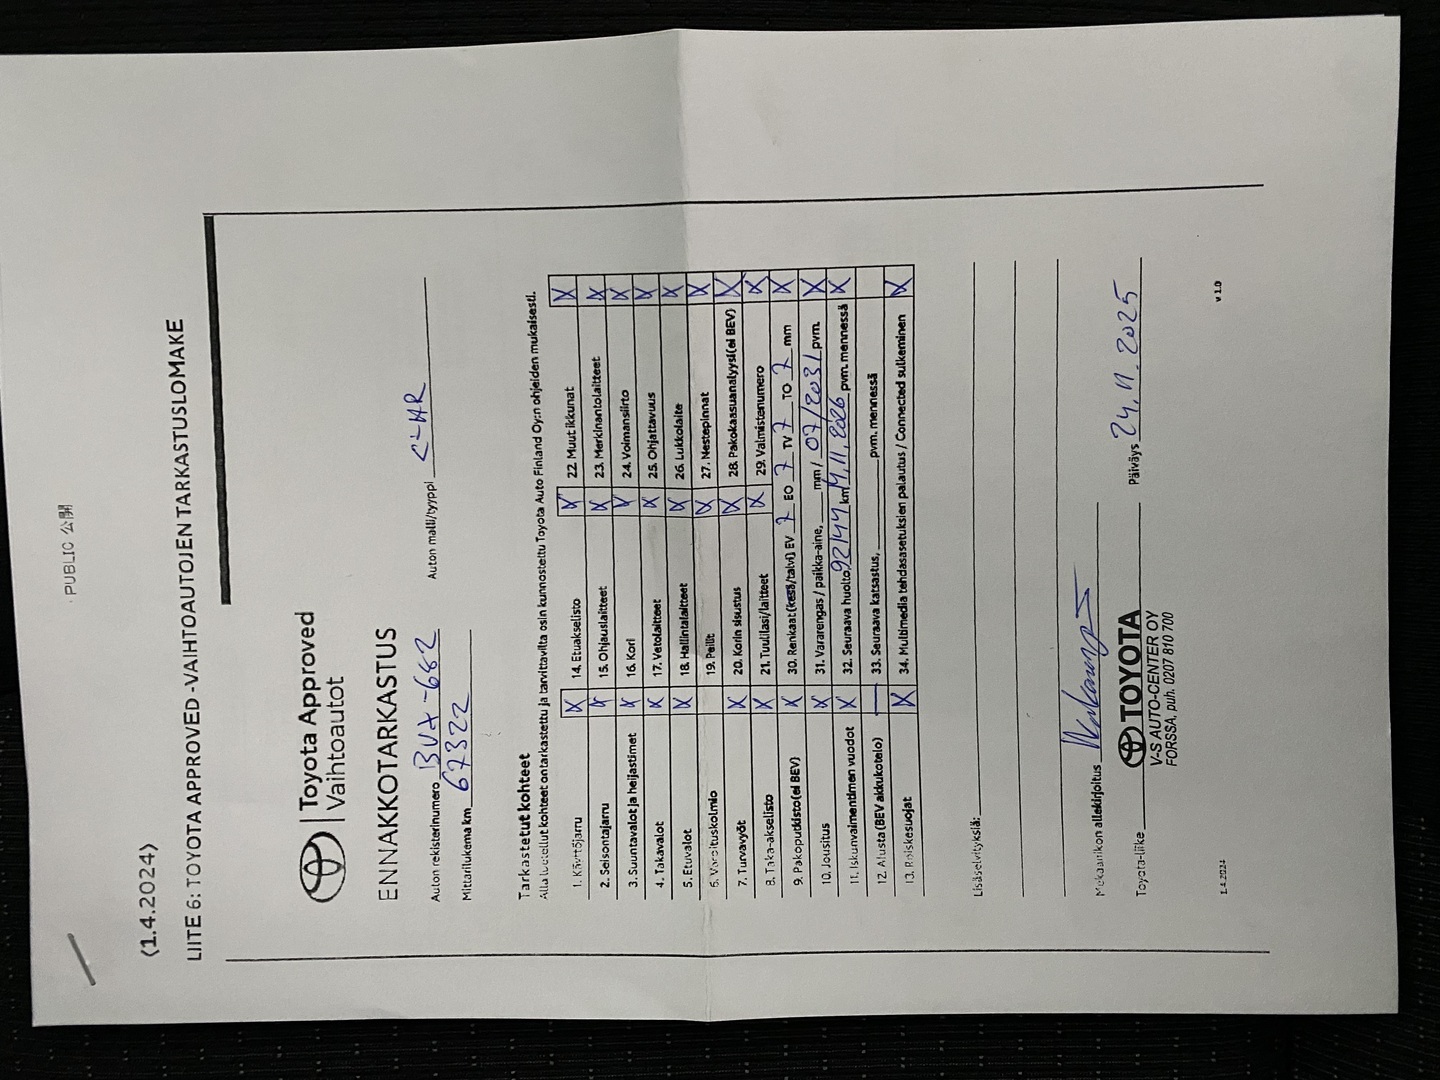 PUBLIC 公開
(1.4.2024)
LIITE 6: TOYOTA APPROVED -VAIHTOAUTOJEN TARKASTUSLOMAKE
Toyota Approved
Vaihtoautot
ENNAKKOTARKASTUS
Auton rekisterinumero BUX-682 Auton malli/tyyppi C-HR
Mittarilukema km 67322
Tarkastetut kohteet
Alla luetellut kohteet on tarkastettu ja tarvittavilta osin kunnostettu Toyota Auto Finland Oy:n ohjeiden mukaisesti.
1. Käyttöjarru X 14. Etuakselisto X 22. Muut ikkunat X
2. Seisontajarru X 15. Ohjauslaitteet X 23. Merkinantolaitteet X
3. Suuntavalot ja heijastimet X 16. Kori X 24. Voimansiirto X
4. Takavalot X 17. Vetolaitteet X 25. Ohjattavuus X
5. Etuvalot X 18. Hallintalaitteet X 26. Lukkolaite X
6. Varoituskolmio 19. Peilit X 27. Nestepinnat X
7. Turvavyöt X 20. Korin sisustus X 28. Pakokaasuanalyysi (ei BEV) X
8. Taka-akselisto X 21. Tuulilasi/laitteet X 29. Valmistenumero X
9. Pakoputkisto (ei BEV) X 30. Renkaat (kesä/talvi) EV 7 EO 7 TV 7 TO 7 mm X
10. Jousitus X 31. Vararengas / paikka-aine, mm/ 07/2031 pvm. X
11. Iskunvaimentimen vuodot X 32. Seuraava huolto, 92144 km/ 11.2026 pvm. mennessä X
12. Alusta (BEV akkukotelo) — 33. Seuraava katsastus, pvm. mennessä
13. Roiskesuojat X 34. Multimedia tehdasasetuksien palautus / Connected sulkeminen X
Lisäselvityksiä:
Mekaanikon allekirjoitus Päiväys 24.11.2025
Toyota-liike TOYOTA
V-S AUTO-CENTER OY
FORSSA, puh. 0207 810 700
1.4.2024 v 1.0